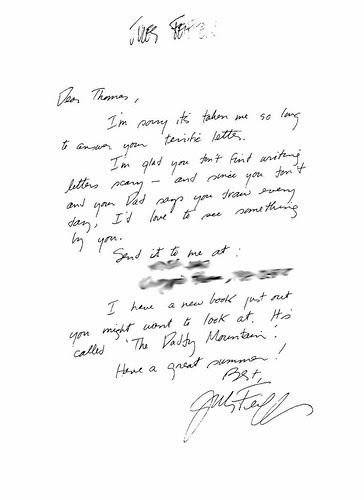 JULES FEIFFER
Dear Thomas,
I'm sorry it's taken me so long
to answer your terrific letter.
I'm glad you don't find writing
letters scary — and since you don't
and your Dad says you draw every
day, I'd love to see something
by you.
Send it to me at:
I have a new book just out
you might want to look at. It's
called 'The Daddy Mountain'.
Have a great summer!
Best,
Jules Feiffer